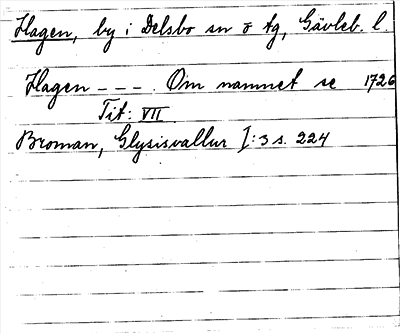 Hagen, by i Delsbo sn o tg, Gävleb. l.
Hagen - - - . Om namnet se 1726
Tit: VII.
Broman, Glysisvallur I: 3 s. 224